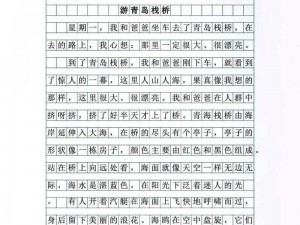 游青岛栈桥
星期一，我和爸爸坐车去了青岛栈桥，在
去的路上，我心想：那里一定很大、很漂亮。
到了青岛栈桥，我和爸爸下了车，就看到
了惊人的一幕，这里人山人海，果真像我想的
那样，这里很大、很漂亮。我和爸爸在人群中
挤呀挤，挤了好半天才上了桥。青岛栈桥由海
岸延伸入大海，在桥的尽头有个亭子，亭子的
形状像一栋房子，颜色主要由红色和黑色组成。
站在桥上向远处看，海面就像天空一样无边无
际，海水是湛蓝色，在阳光下泛着迷人的光
，有人开着汽艇在海面上飞快地呼啸而过，
身后留下美丽的浪花。海鸥在空中盘旋，它们